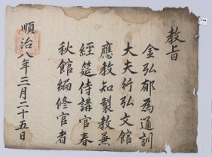 教旨
金弘郁為通訓
大夫行弘文館
應教知製教兼
經筵侍講官春
秋館編修官者
順治八年二月二十五日